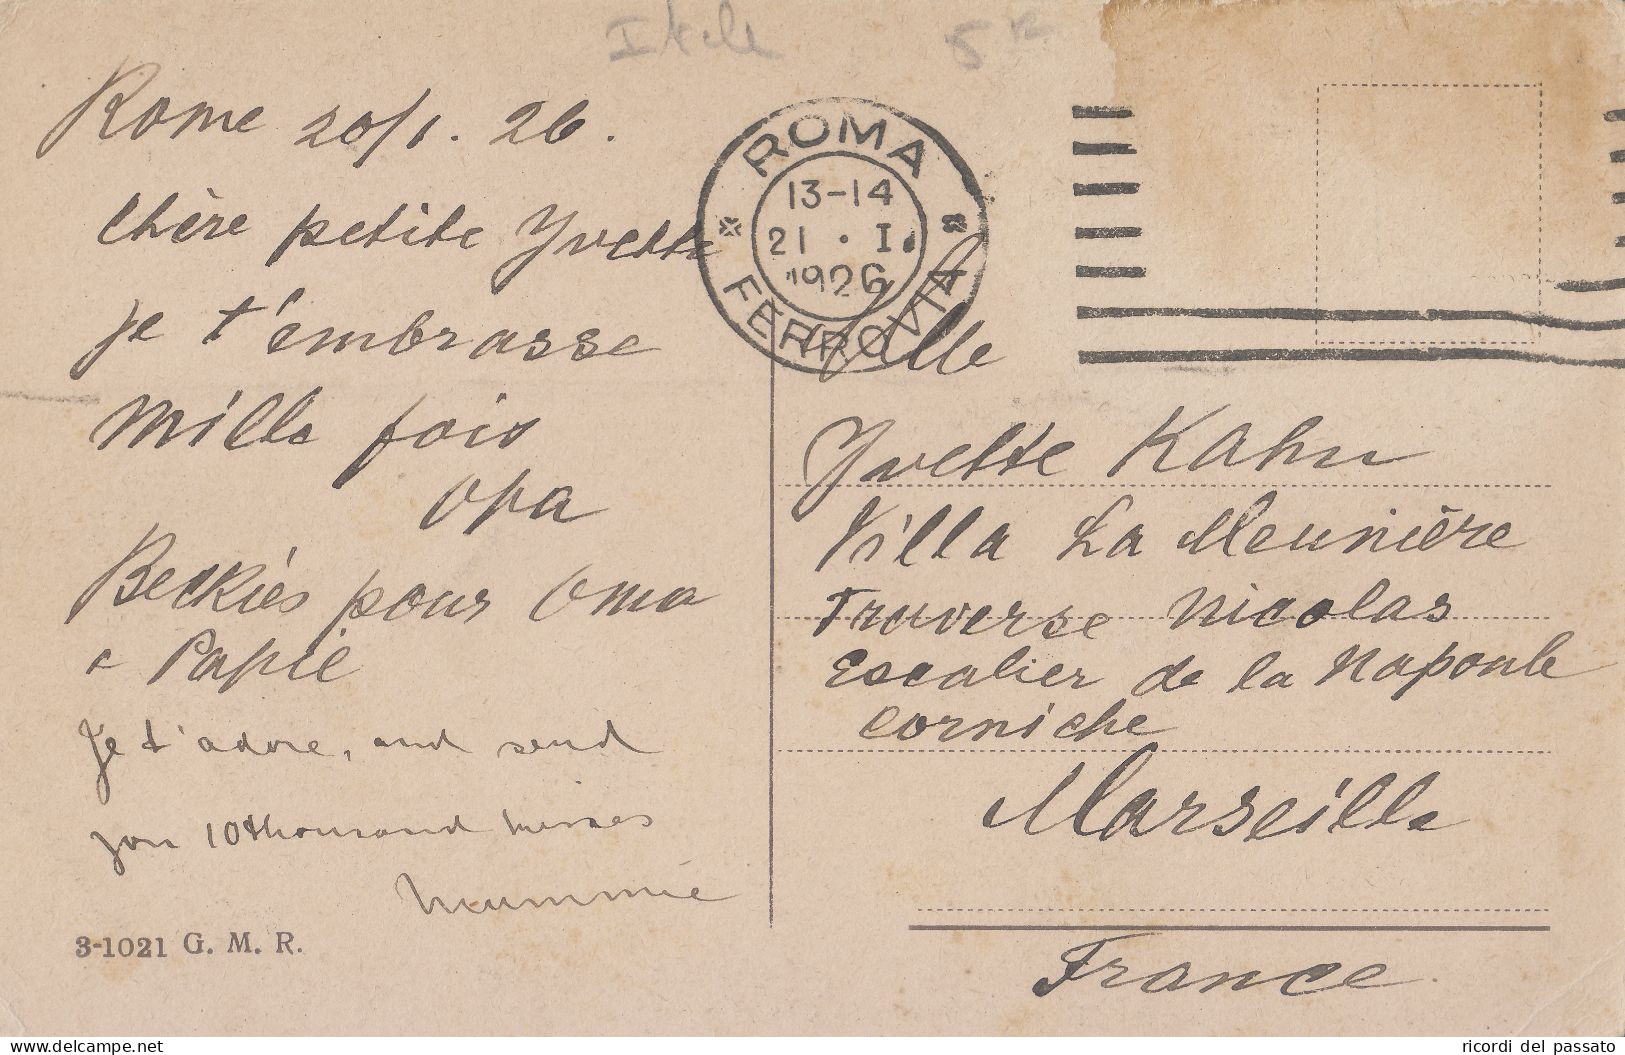 Itali
5
Rome 20/1. 26.
Chère petite Yvette
je t'embrasse
Mille fois
Opa
Beckiés pour Oma
Papie
Je t'adore, and send
you 10thousand kisses
Mummie
3-1021 G. M. R.
ROMA
13-14
21 · I.
1926
FERROVIA
Mlle
Yvette Kahn
Villa La Meunière
Traverse Nicolas
Escalier de la Napoule
Corniche
Marseille
France.
delcampe.net
ricordi del passato